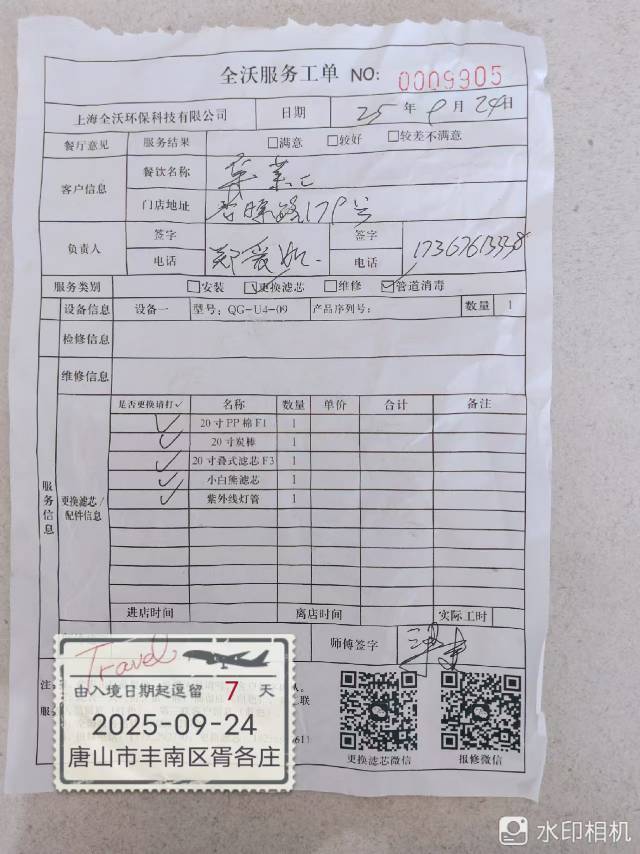 全沃服务工单 NO: 0009905
上海全沃环保科技有限公司 日期 25 年 9 月 24 日
餐厅意见 服务结果 □满意 □较好 □较差不满意
客户信息 餐饮名称
门店地址 路179号
负责人 签字 签字
电话 郑爱 电话
服务类别 □安装 ☑更换滤芯 □维修 ☑管道消毒
设备信息 设备一 型号: QG-U4-09 产品序列号: 数量 1
检修信息
维修信息
服务信息
更换滤芯/配件信息
是否更换请打✓ 名称 数量 单价 合计 备注
✓ 20寸PP棉F1 1
✓ 20寸炭棒 1
✓ 20寸叠式滤芯F3 1
✓ 小白熊滤芯 1
✓ 紫外线灯管 1
进店时间 离店时间 实际工时
师傅签字
Travel
由入境日期起逗留 7 天
2025-09-24
唐山市丰南区胥各庄
注
服
联
611
更换滤芯微信 报修微信
水印相机